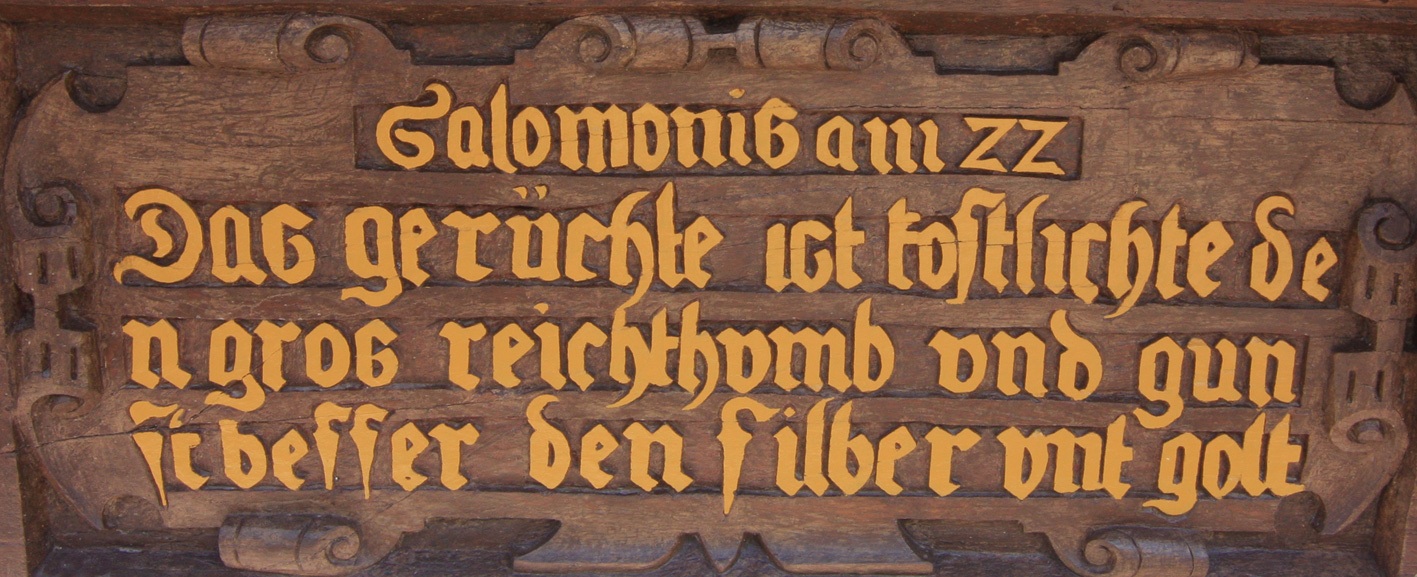 Salomonis am 22
Das gerüchte ist köstlichte de
n gros reichthvmb vnd gun
st besser den silber vnt golt